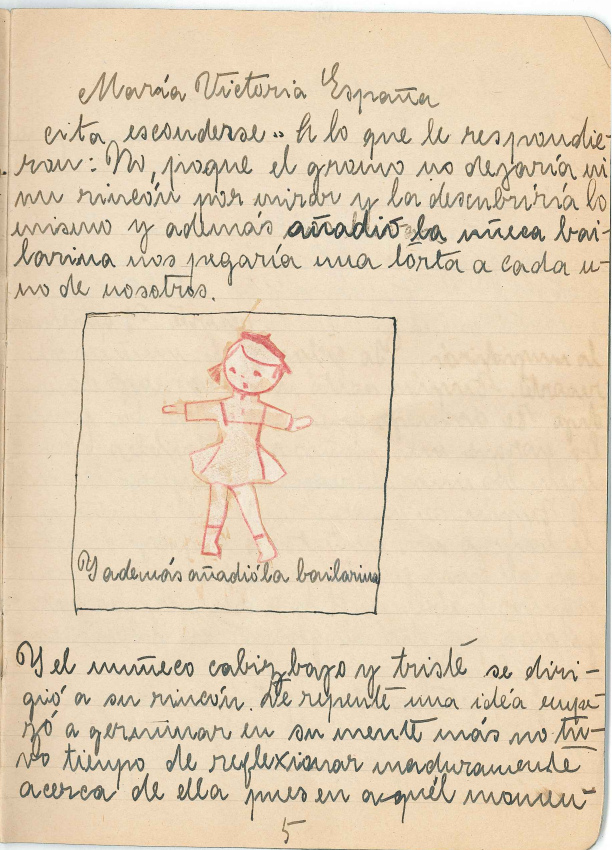 María Victoria España
cita esconderse". A lo que le respondie-
ron: No, poque el gnomo no dejaría ni
un rincón por mirar y la descubriría lo
mismo y además añadió la muñeca bai-
larina nos pegaría una torta a cada u-
no de nosotros.
Y además añadió la bailarina
Y el muñeco cabizbajo y triste se diri-
gió a su rincón. De repente una idéa empe
zó a germinar en su mente más no tu-
vo tiempo de reflexionar maduramente
acerca de ella pues en aquél momen-
5